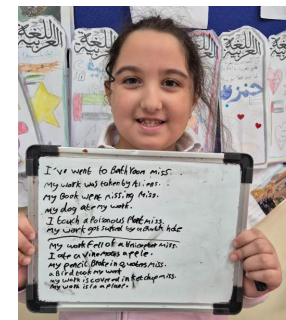 اللغة العربية
اللغة العربية
اللغة العربية
اللغة العربية
I've went to Bathroom miss..
My work was taken by Aliens..
my Book went missing miss.
my dog ate my work.
I touch a Poisonous Plant miss.
My work got sucked by a
My work fell of a miss.
I ate a apple.
my pencil Broke in miss.
a Bird took my work
my work is covered in ketchup miss.
My work is in a plane.